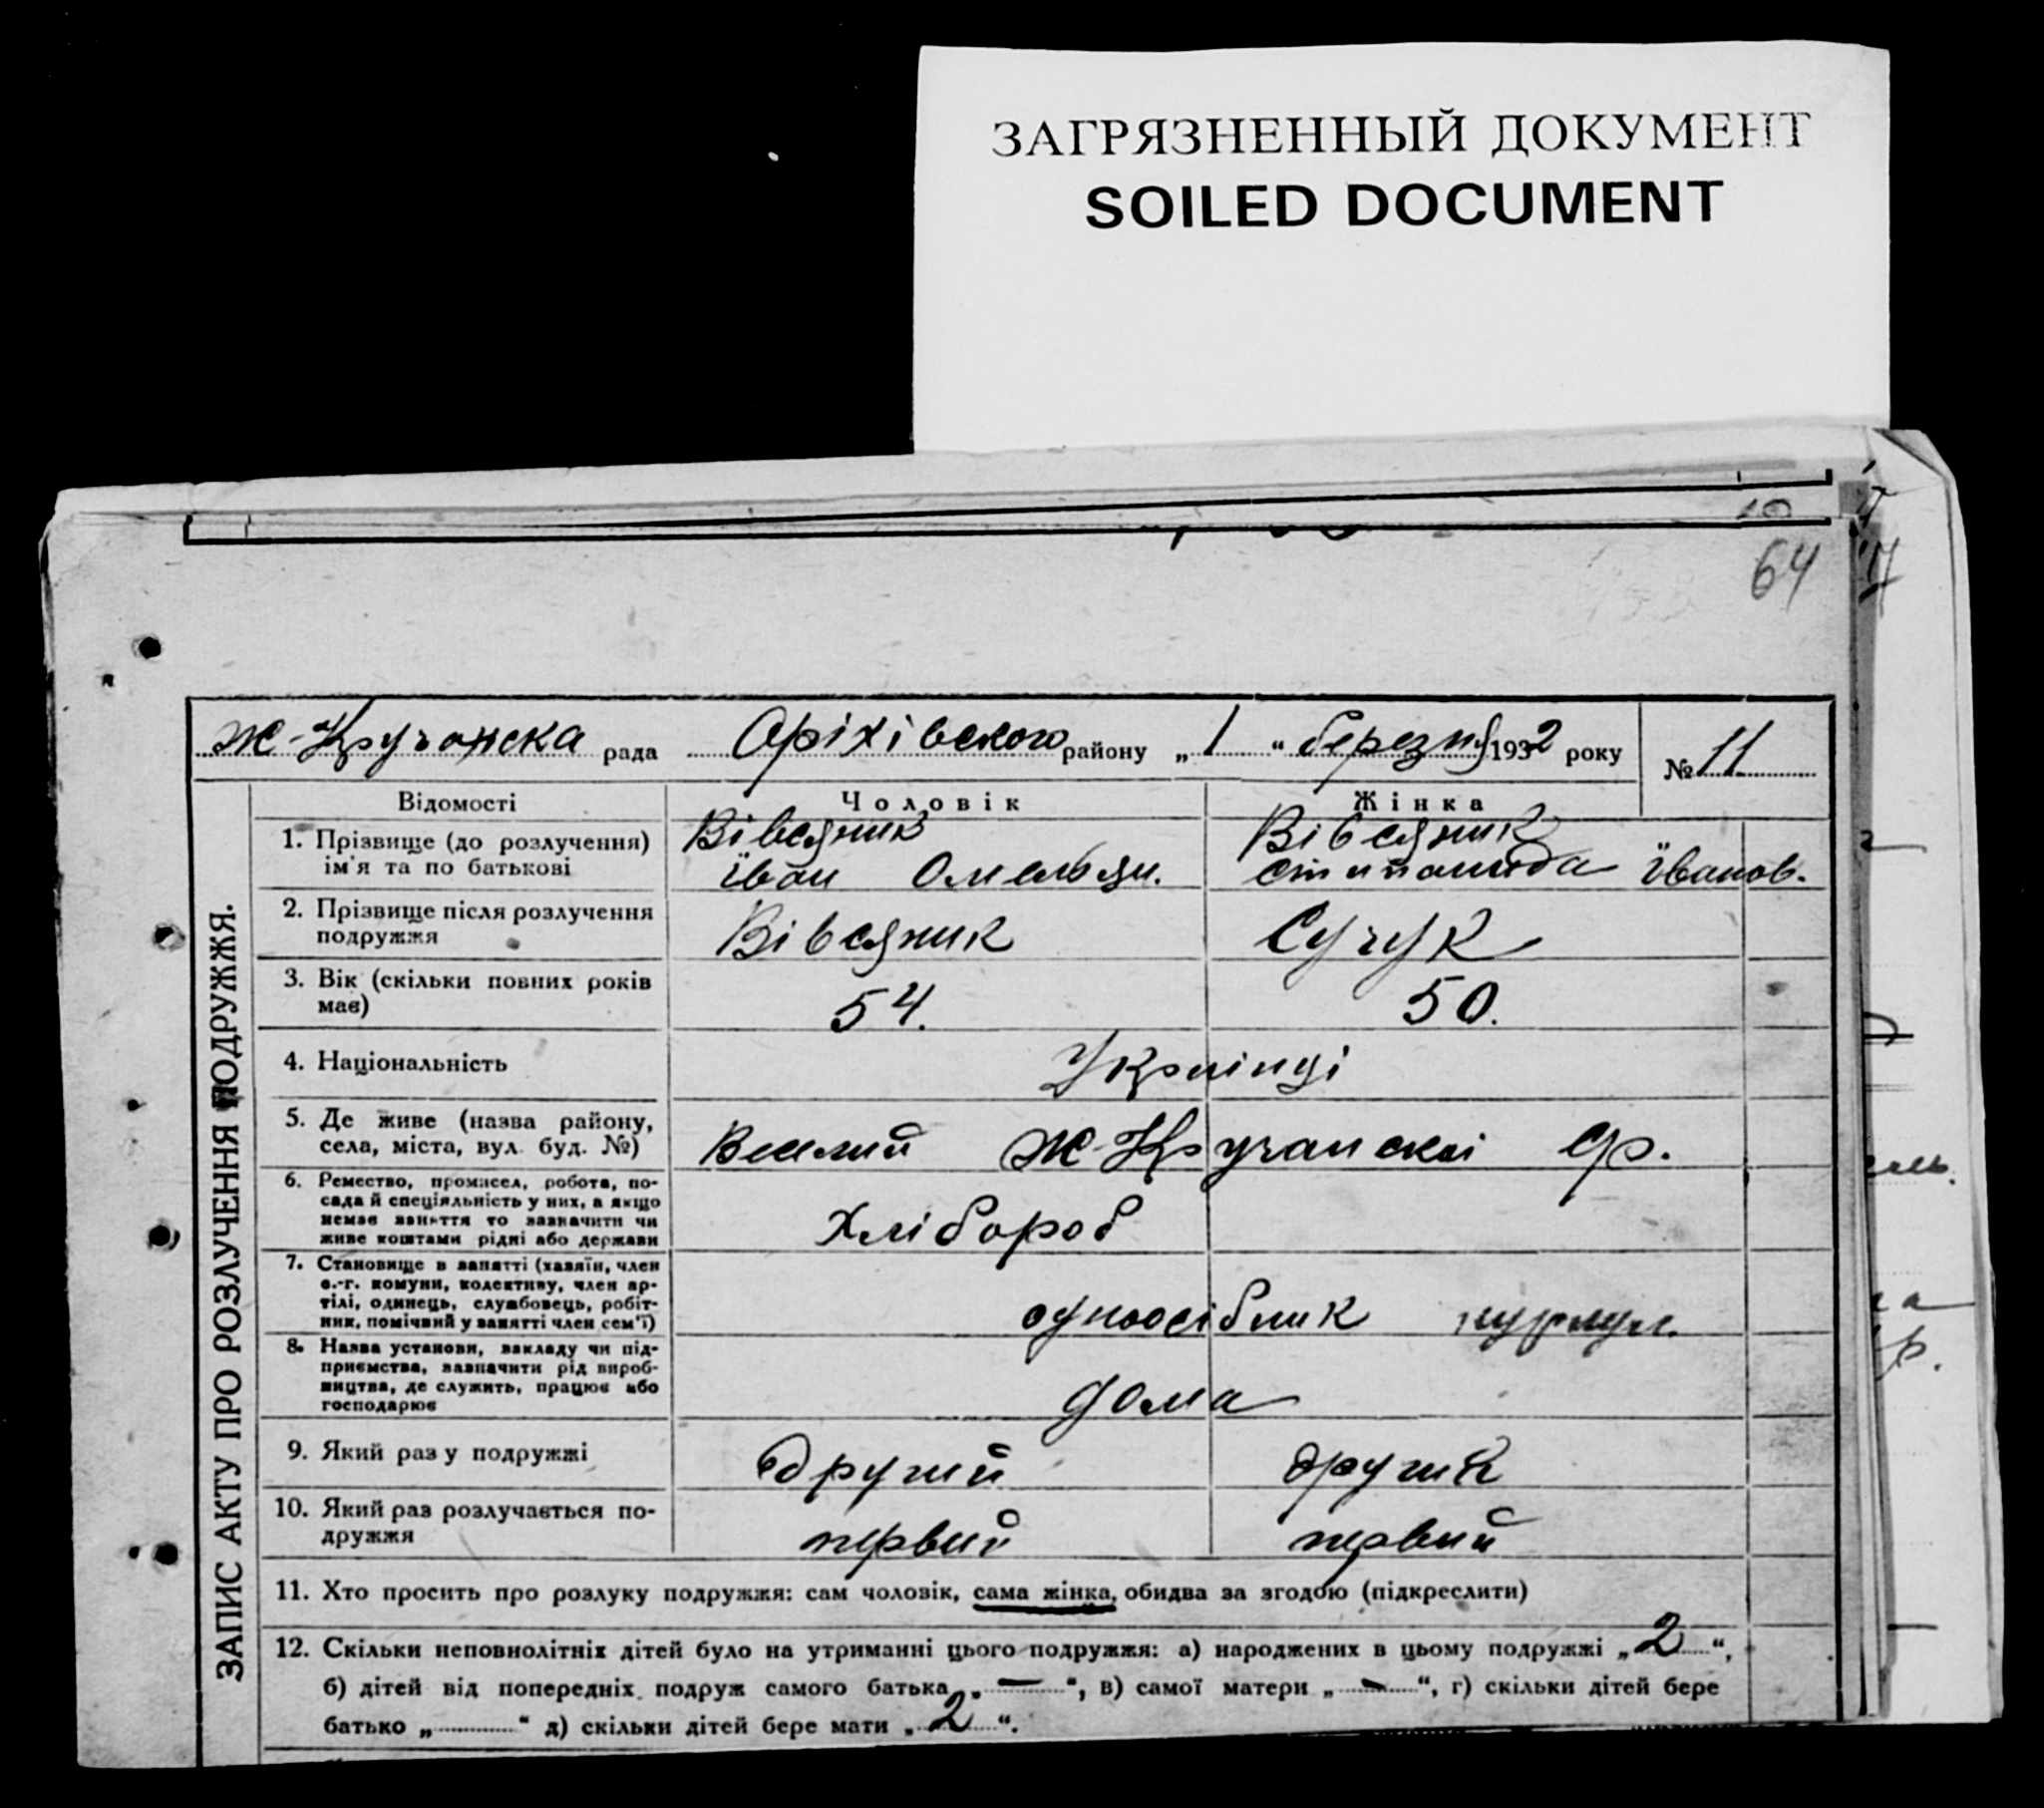 ЗАГРЯЗНЕННЫЙ ДОКУМЕНТ
SOILED DOCUMENT
64
ЗАПИС АКТУ ПРО РОЗЛУЧЕННЯ ПОДРУЖЖЯ.
Ж-Кручанска рада Оріхівского району „1“ березня 1932 року № 11
Відомості Чоловік Жінка
1. Прізвище (до розлучення) Вівсяник Вівсяник
ім'я та по батькові Їван Омельян. Їванов.
2. Прізвище після розлучення
подружжя Вівсяник Сучук
3. Вік (скільки повних років
має) 54. 50.
4. Національність Украінці
5. Де живе (назва району,
села, міста, вул. буд. №) Ж-Кручанскої ср.
6. Ремество, промисел, робота, по-
сада й спеціяльність у них, а якщо
немає заняття то зазначити чи
живе коштами рідні або держави Хлібороб
7. Становище в занятті (хазяїн, член
с.-г. комуни, колективу, член ар-
тілі, одинець, службовець, робіт-
ник, помічний у занятті член сем'ї) одноосібник
8. Назва установи, закладу чи під-
приємства, зазначити рід вироб-
ництва, де служить, працює або
господарює дома
9. Який раз у подружжі другий другий
10. Який раз розлучається по-
дружжя первий первий
11. Хто просить про розлуку подружжя: сам чоловік, сама жінка, обидва за згодою (підкреслити)
12. Скільки неповнолітніх дітей було на утриманні цього подружжя: а) народжених в цьому подружжі „2“,
б) дітей від попередніх подруж самого батька „—“, в) самої матери „—“, г) скільки дітей бере
батько „......“ д) скільки дітей бере мати „2“.